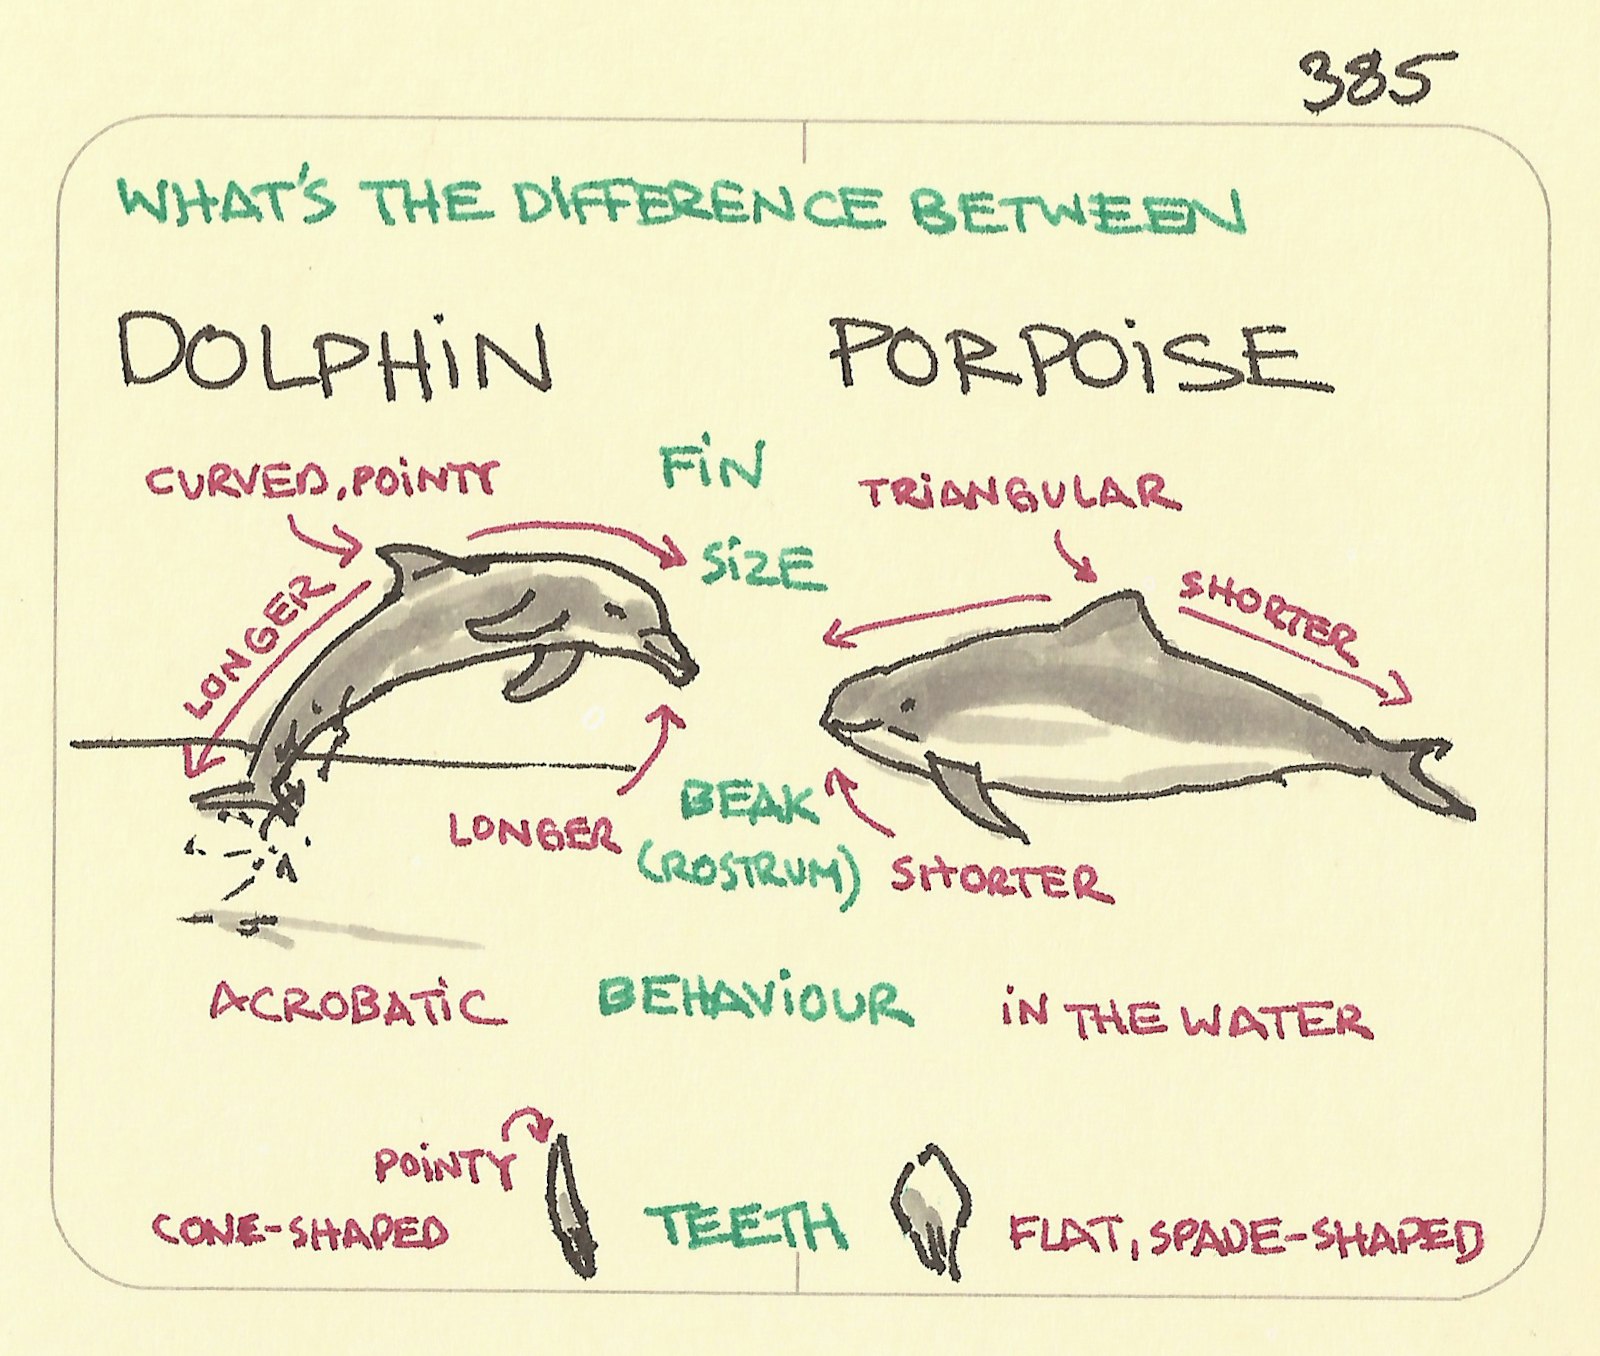 385
WHAT'S THE DIFFERENCE BETWEEN
DOLPHIN
PORPOISE
CURVED, POINTY
FIN
TRIANGULAR
LONGER
SIZE
SHORTER
LONGER
BEAK
(ROSTRUM)
SHORTER
ACROBATIC
BEHAVIOUR
IN THE WATER
POINTY
CONE-SHAPED
TEETH
FLAT, SPADE-SHAPED